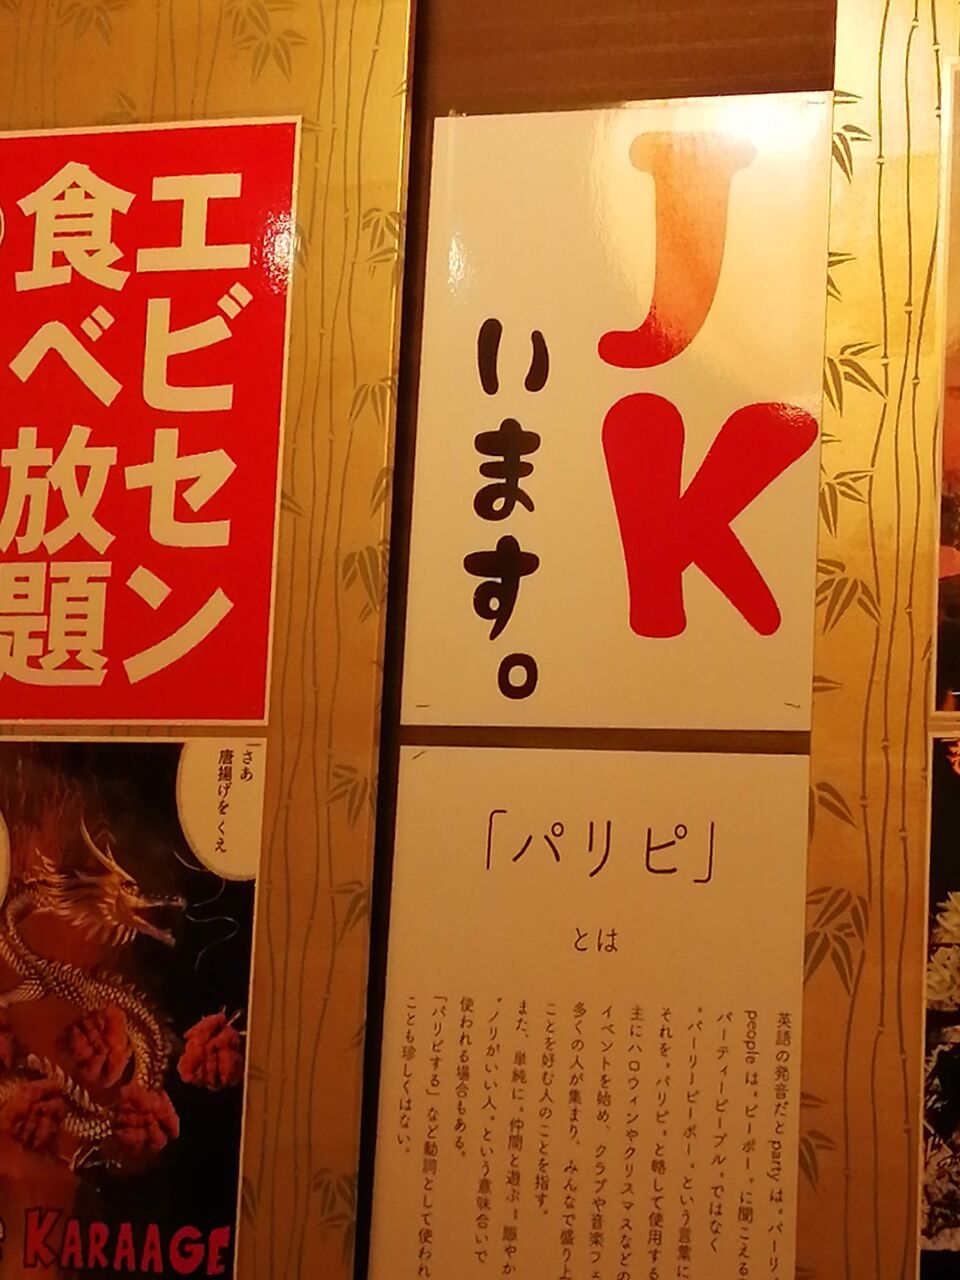 エビセン
食べ放題
JK
います。
「さあ
唐揚げをくえ
KARAAGE
「パリピ」
とは
英語の発音だとpartyは“パーリ
peopleは“ピーポー”に聞こえる
パーティーピープル”ではなく
“パーリーピーポー”という言葉に
それを“パリピ”と略して使用する
主にハロウィンやクリスマスなどの
イベントを始め、クラブや音楽フェ
多くの人が集まり、みんなで盛り上
ことを好む人のことを指す。
また、単純に“仲間と遊ぶ”“賑やか
“ノリがいい人”という意味合いで
使われる場合もある。
「パリピする」など動詞として使われ
ことも珍しくはない。